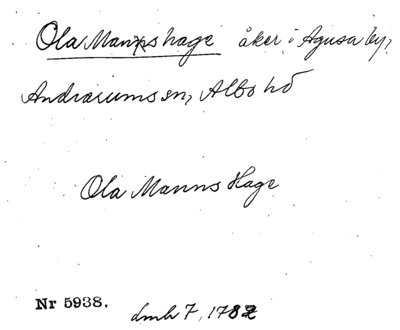 Ola Manns hage åker i Agusa by,
Andrarums sn, Albo hd
Ola Manns Hage
Nr 5938.
dmh 7, 1782